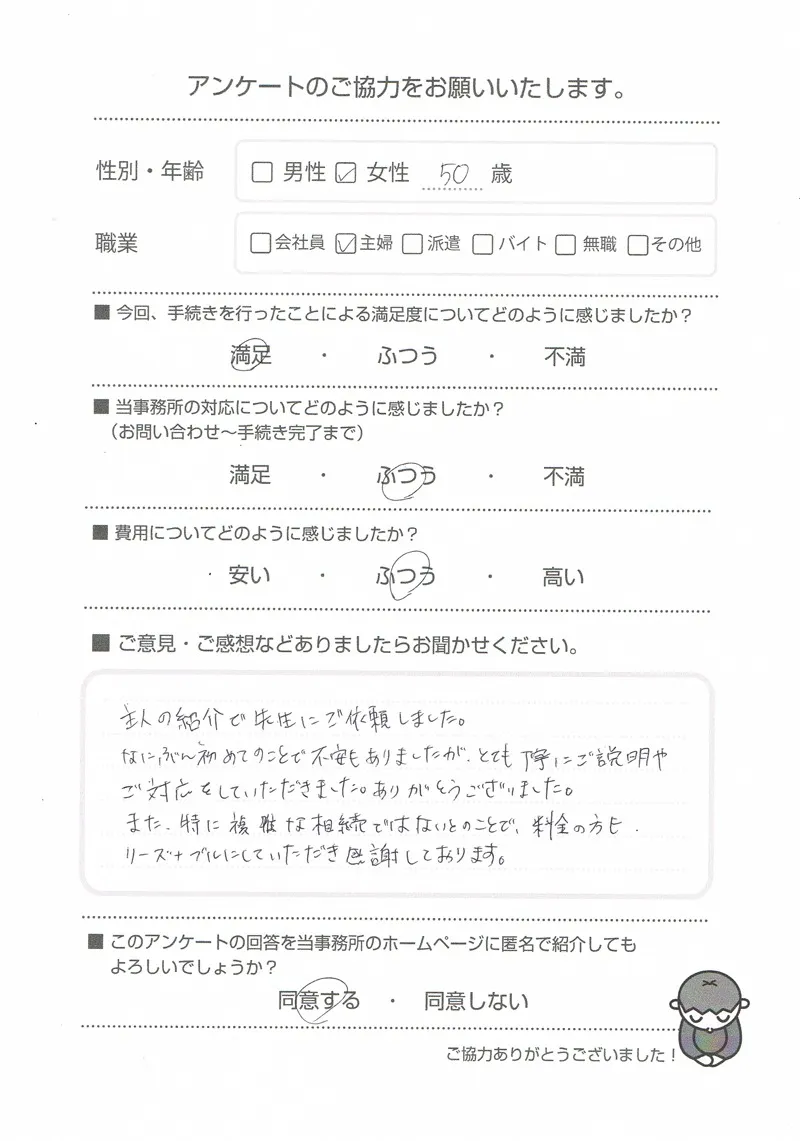 アンケートのご協力をお願いいたします。
性別・年齢 □ 男性 ☑ 女性 50 歳
職業 □会社員 ☑主婦 □派遣 □バイト □無職 □その他
■ 今回、手続きを行ったことによる満足度についてどのように感じましたか？
満足 ・ ふつう ・ 不満
■ 当事務所の対応についてどのように感じましたか？
（お問い合わせ～手続き完了まで）
満足 ・ ふつう ・ 不満
■ 費用についてどのように感じましたか？
安い ・ ふつう ・ 高い
■ ご意見・ご感想などありましたらお聞かせください。
主人の紹介で先生にご依頼しました。
なにぶん初めてのことで不安もありましたが、とても丁寧にご説明や
ご対応をしていただきました。ありがとうございました。
また、特に複雑な相続ではないとのことで、料金の方も、
リーズナブルにしていただき感謝しております。
■ このアンケートの回答を当事務所のホームページに匿名で紹介しても
よろしいでしょうか？
同意する ・ 同意しない
ご協力ありがとうございました！